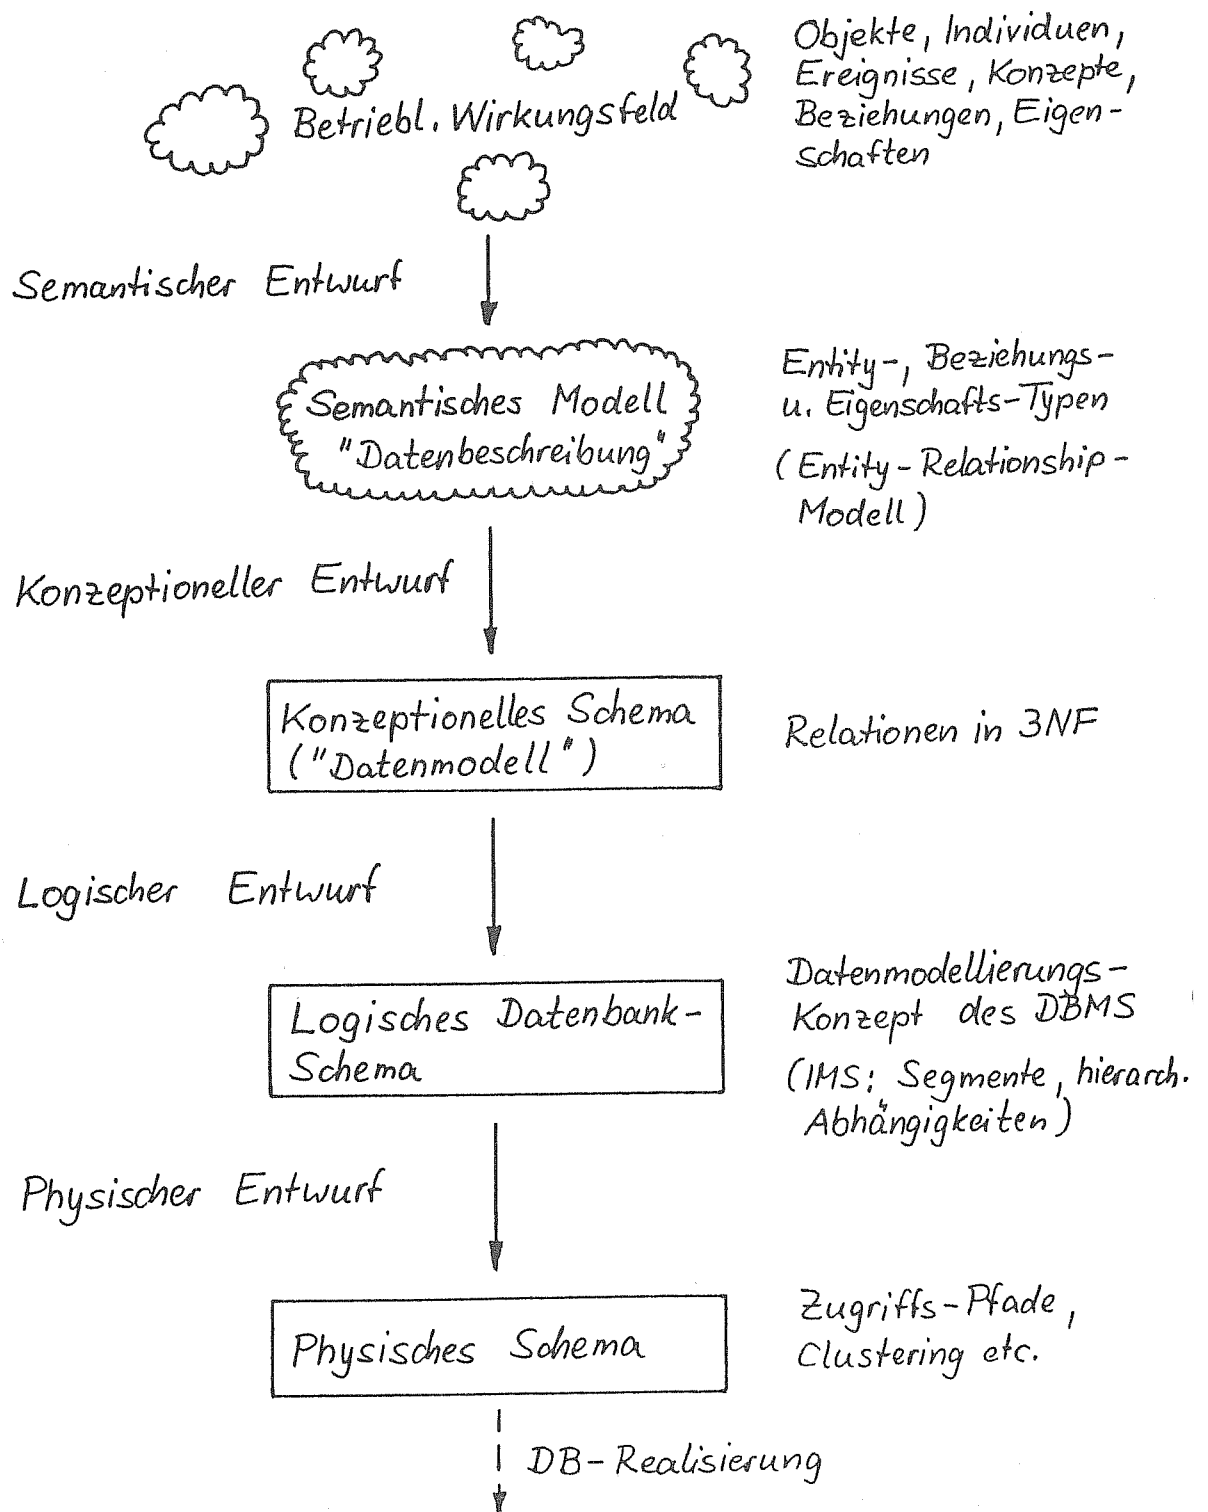 Objekte, Individuen,
Ereignisse, Konzepte,
Beziehungen, Eigen-
schaften
Betriebl. Wirkungsfeld
Semantischer Entwurf
Semantisches Modell
"Datenbeschreibung"
Entity-, Beziehungs-
u. Eigenschafts-Typen
(Entity-Relationship-
Modell)
Konzeptioneller Entwurf
Konzeptionelles Schema
("Datenmodell")
Relationen in 3NF
Logischer Entwurf
Logisches Datenbank-
Schema
Datenmodellierungs-
Konzept des DBMS
(IMS: Segmente, hierarch.
Abhängigkeiten)
Physischer Entwurf
Physisches Schema
Zugriffs-Pfade,
Clustering etc.
DB-Realisierung